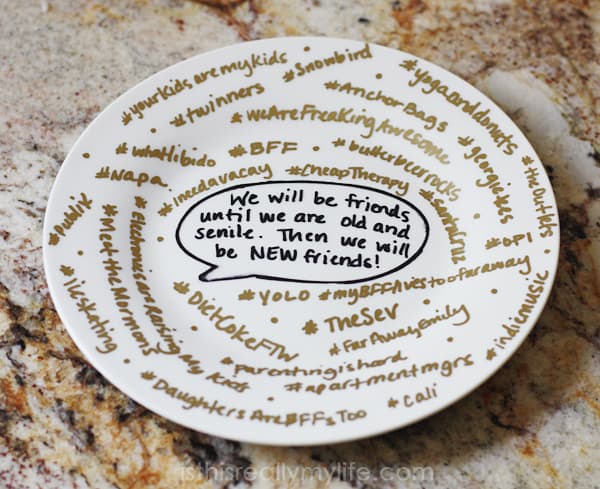 #yourkidsaremykids
#Snowbird
#yogaanddonuts
#twinners
#AnchorBags
#weAreFreakingAwesome
#whatlibido
#BFF
#butterbeerrocks
#georgiekids
#theOutlets
#Napa
#ineedavacay
#CheapTherapy
#santaCruz
#publik
We will be friends
until we are old and
senile. Then we will
be NEW friends!
#OPI
#MeettheMormons
#YOLO
#myBFFlivestoofaraway
#DietCokeFTW
#TheSev
#indiemusic
#FarAwayEmily
#parentingishard
#apartmentmgrs
#DaughtersAreBFFsToo
#cali
isthisreallymylife.com